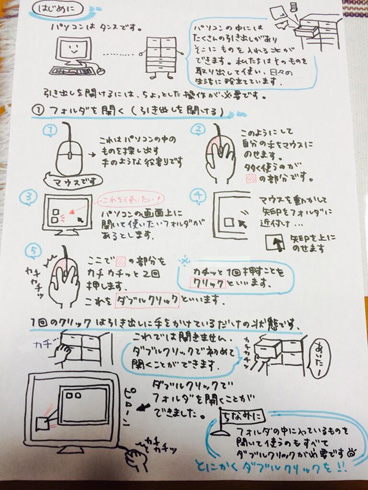 はじめに
パソコンはタンスです。
パソコンの中には
たくさんの引き出しがあり
そこにものを入れることが
できます。私たちはそのものを
取り出して使い、日々の
生活に役立てています。
引き出しを開けるには、ちょっとした操作が必要です。
① フォルダを開く(引き出しを開ける)
①
これはパソコンの中の
ものを探し出す
手のような役割りです
マウスです
②
このようにして
自分の手をマウスに
のせます。
多く使うのが
の部分です。
③
これを使いたい!
パソコンの画面上に
開いて使いたいフォルダが
あるとします。
④
マウスを動かして
矢印をフォルダに
近付け…
矢印を上に
のせます
⑤
カチカチッ
ここで の部分を
カチカチッと2回
押します。
これを ダブルクリック といいます。
※
カチッと1回押すことを
クリック といいます。
1回のクリックは引き出しに手をかけているだけの状態です。
カチッ
これでは開きません。
ダブルクリックで初めて
開くことができます。
カチカチッ
あいた!
ダブルクリックで
フォルダを開くことが
できました。
カチカチッ
ちなみに
フォルダの中に入っているものを
開いて使うのもすべて
ダブルクリックが必要です
とにかくダブルクリックを!!